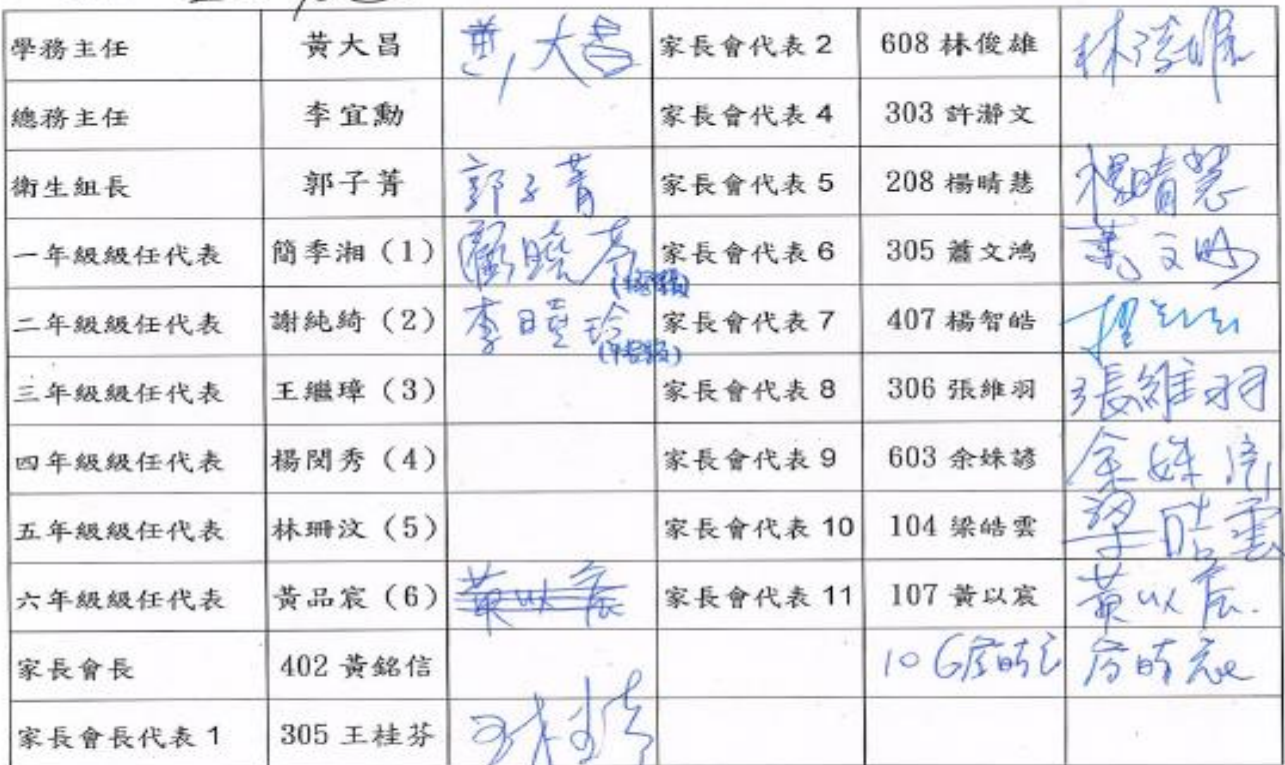 學務主任 黃大昌 黃大昌 家長會代表 2 608 林俊雄 林俊雄
總務主任 李宜勳 家長會代表 4 303 許瀞文
衛生組長 郭子菁 郭子菁 家長會代表 5 208 楊晴慧 楊晴慧
一年級級任代表 簡季湘（1） 家長會代表 6 305 蕭文鴻
二年級級任代表 謝純綺（2） 李曉玲 家長會代表 7 407 楊智皓
三年級級任代表 王繼璋（3） 家長會代表 8 306 張維羽 張維羽
四年級級任代表 楊閔秀（4） 家長會代表 9 603 余姝諺
五年級級任代表 林珊汶（5） 家長會代表 10 104 梁皓雲
六年級級任代表 黃品宸（6） 黃以宸 家長會代表 11 107 黃以宸 黃以宸
家長會長 402 黃銘信
家長會長代表 1 305 王桂芬